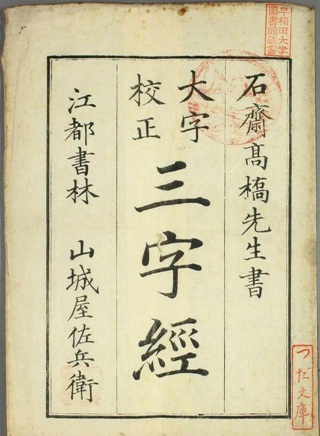 石齋髙橋先生書
大字
校正
三字經
江都書林 山城屋佐兵衛
早稲田大学
図書館蔵書
つだ文庫